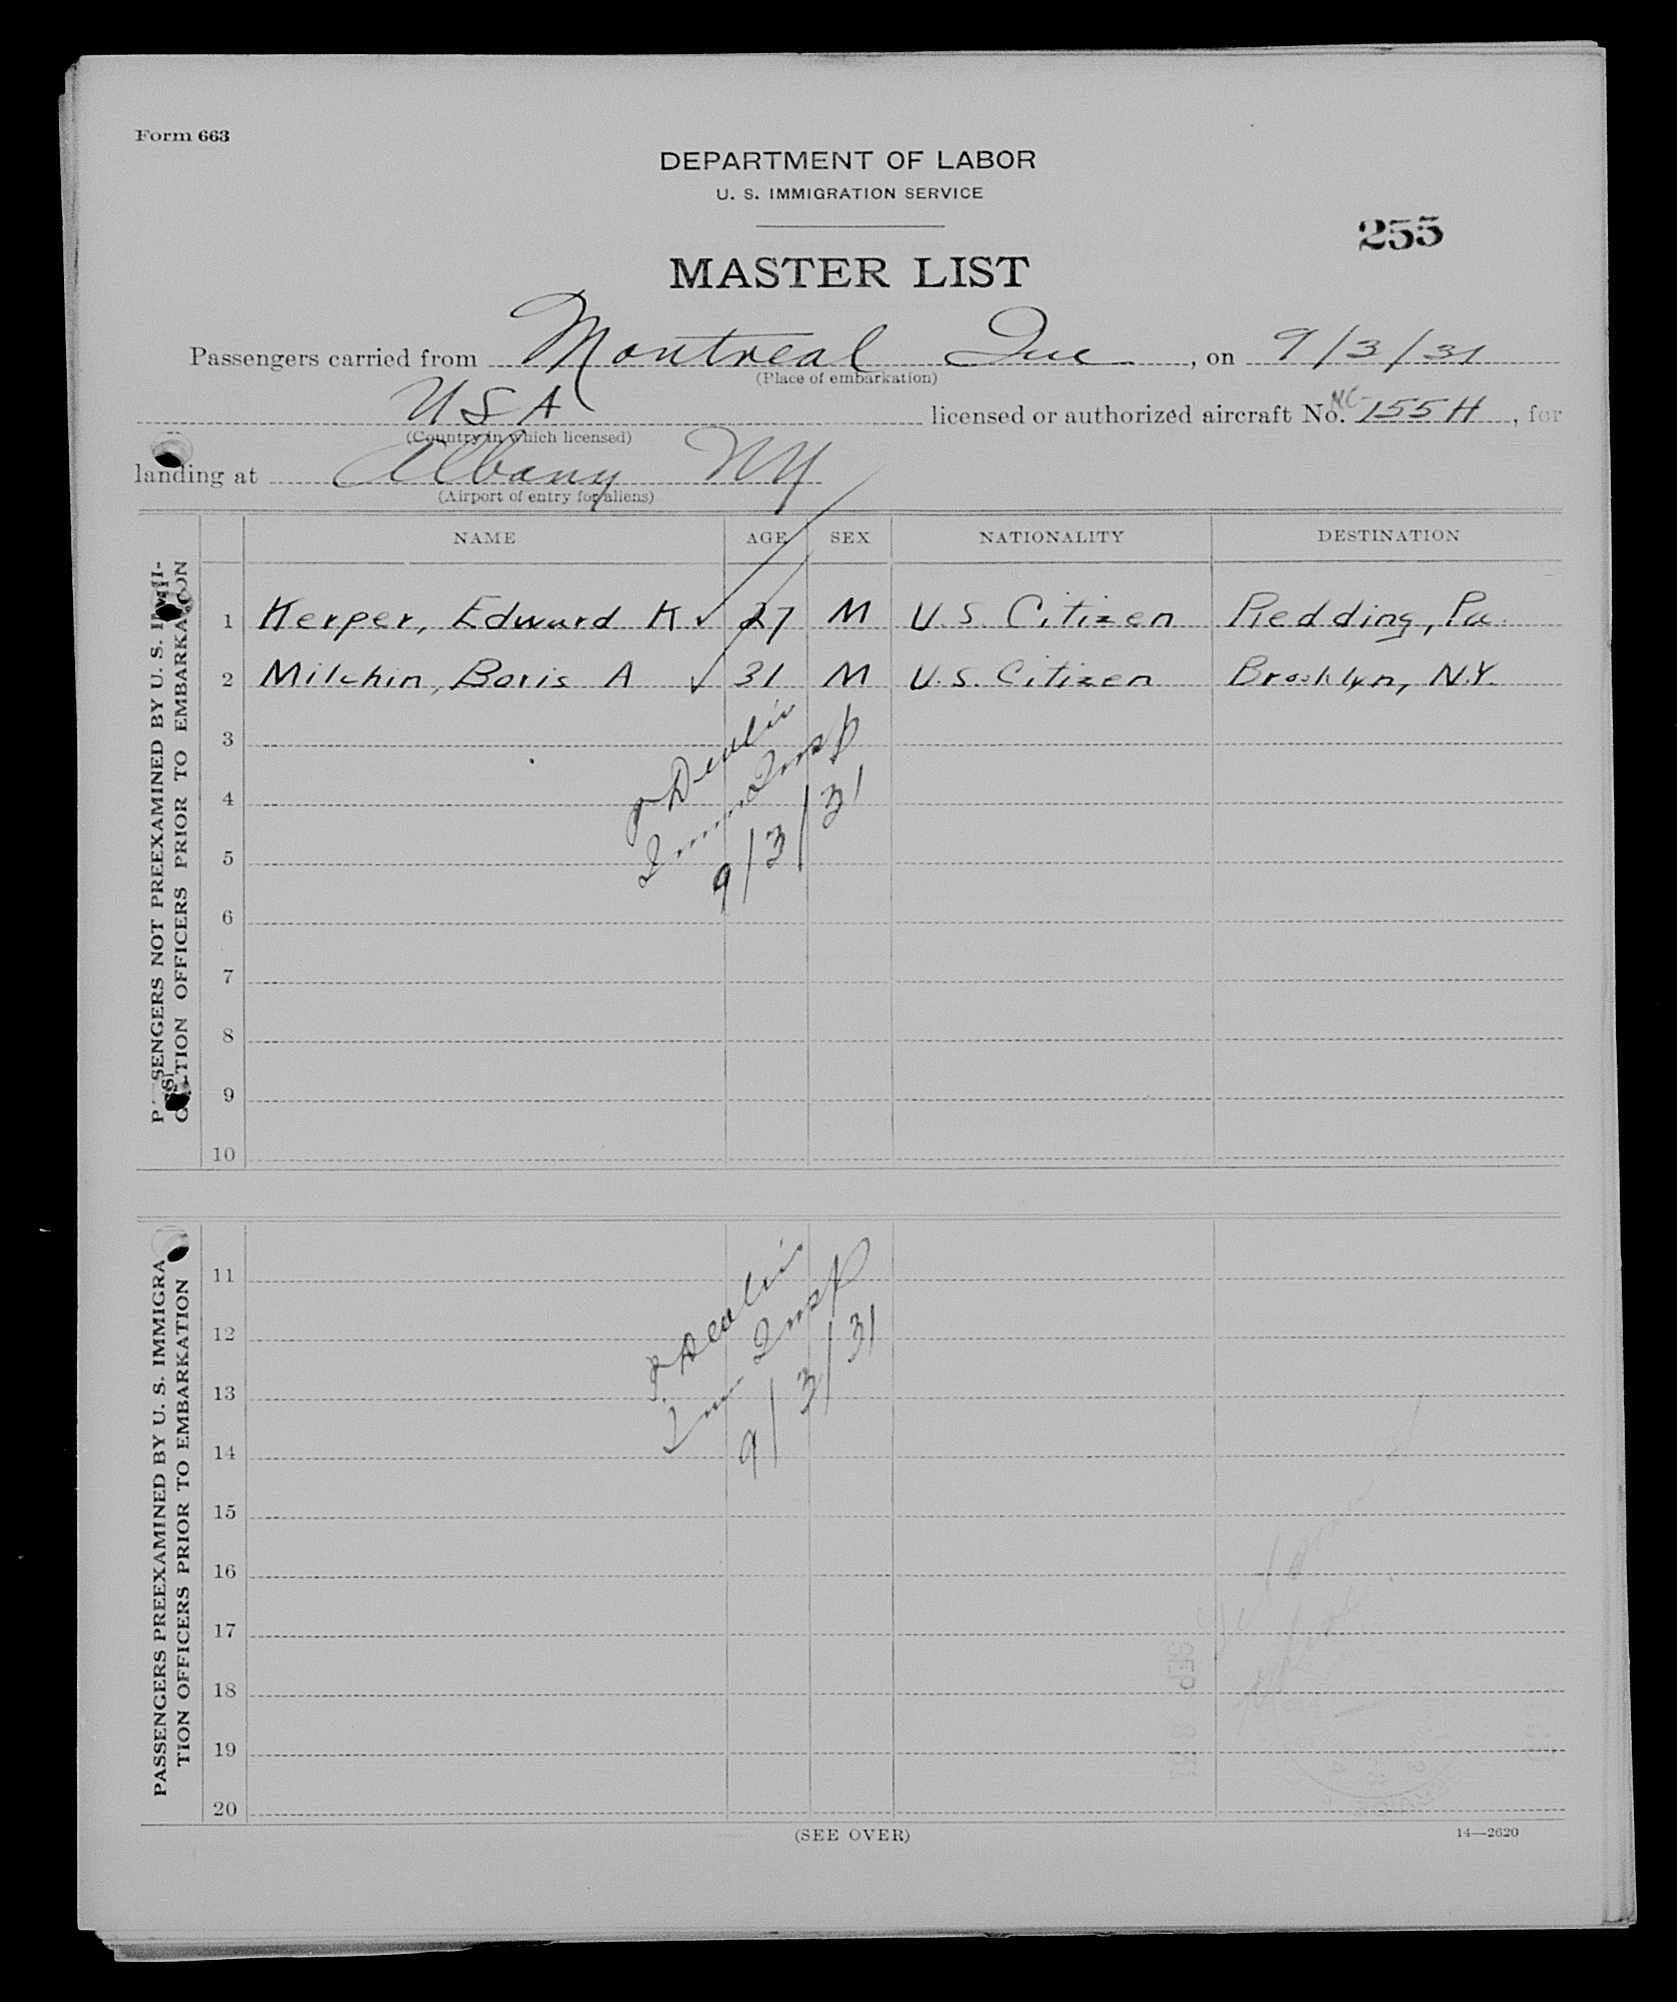 Form 663
DEPARTMENT OF LABOR
U. S. IMMIGRATION SERVICE
255
MASTER LIST
Passengers carried from Montreal Que, on 9/3/31
(Place of embarkation)
USA licensed or authorized aircraft No. NC-155H, for
(Country in which licensed)
landing at Albany NY
(Airport of entry for aliens)
NAME AGE SEX NATIONALITY DESTINATION
PASSENGERS NOT PREEXAMINED BY U. S. IMMI-
GRATION OFFICERS PRIOR TO EMBARKATION
1 Kerper, Edward K ✓ 27 M U.S. Citizen Redding, Pa.
2 Milchin, Boris A ✓ 31 M U.S. Citizen Brooklyn, N.Y.
3
4
5
6
7
8
9
10
Devlin
Imm Insp
9/3/31
PASSENGERS PREEXAMINED BY U. S. IMMIGRA
TION OFFICERS PRIOR TO EMBARKATION
11
12
13
14
15
16
17
18
19
20
Devlin
Imm Insp
9/3/31
(SEE OVER)
14—2620